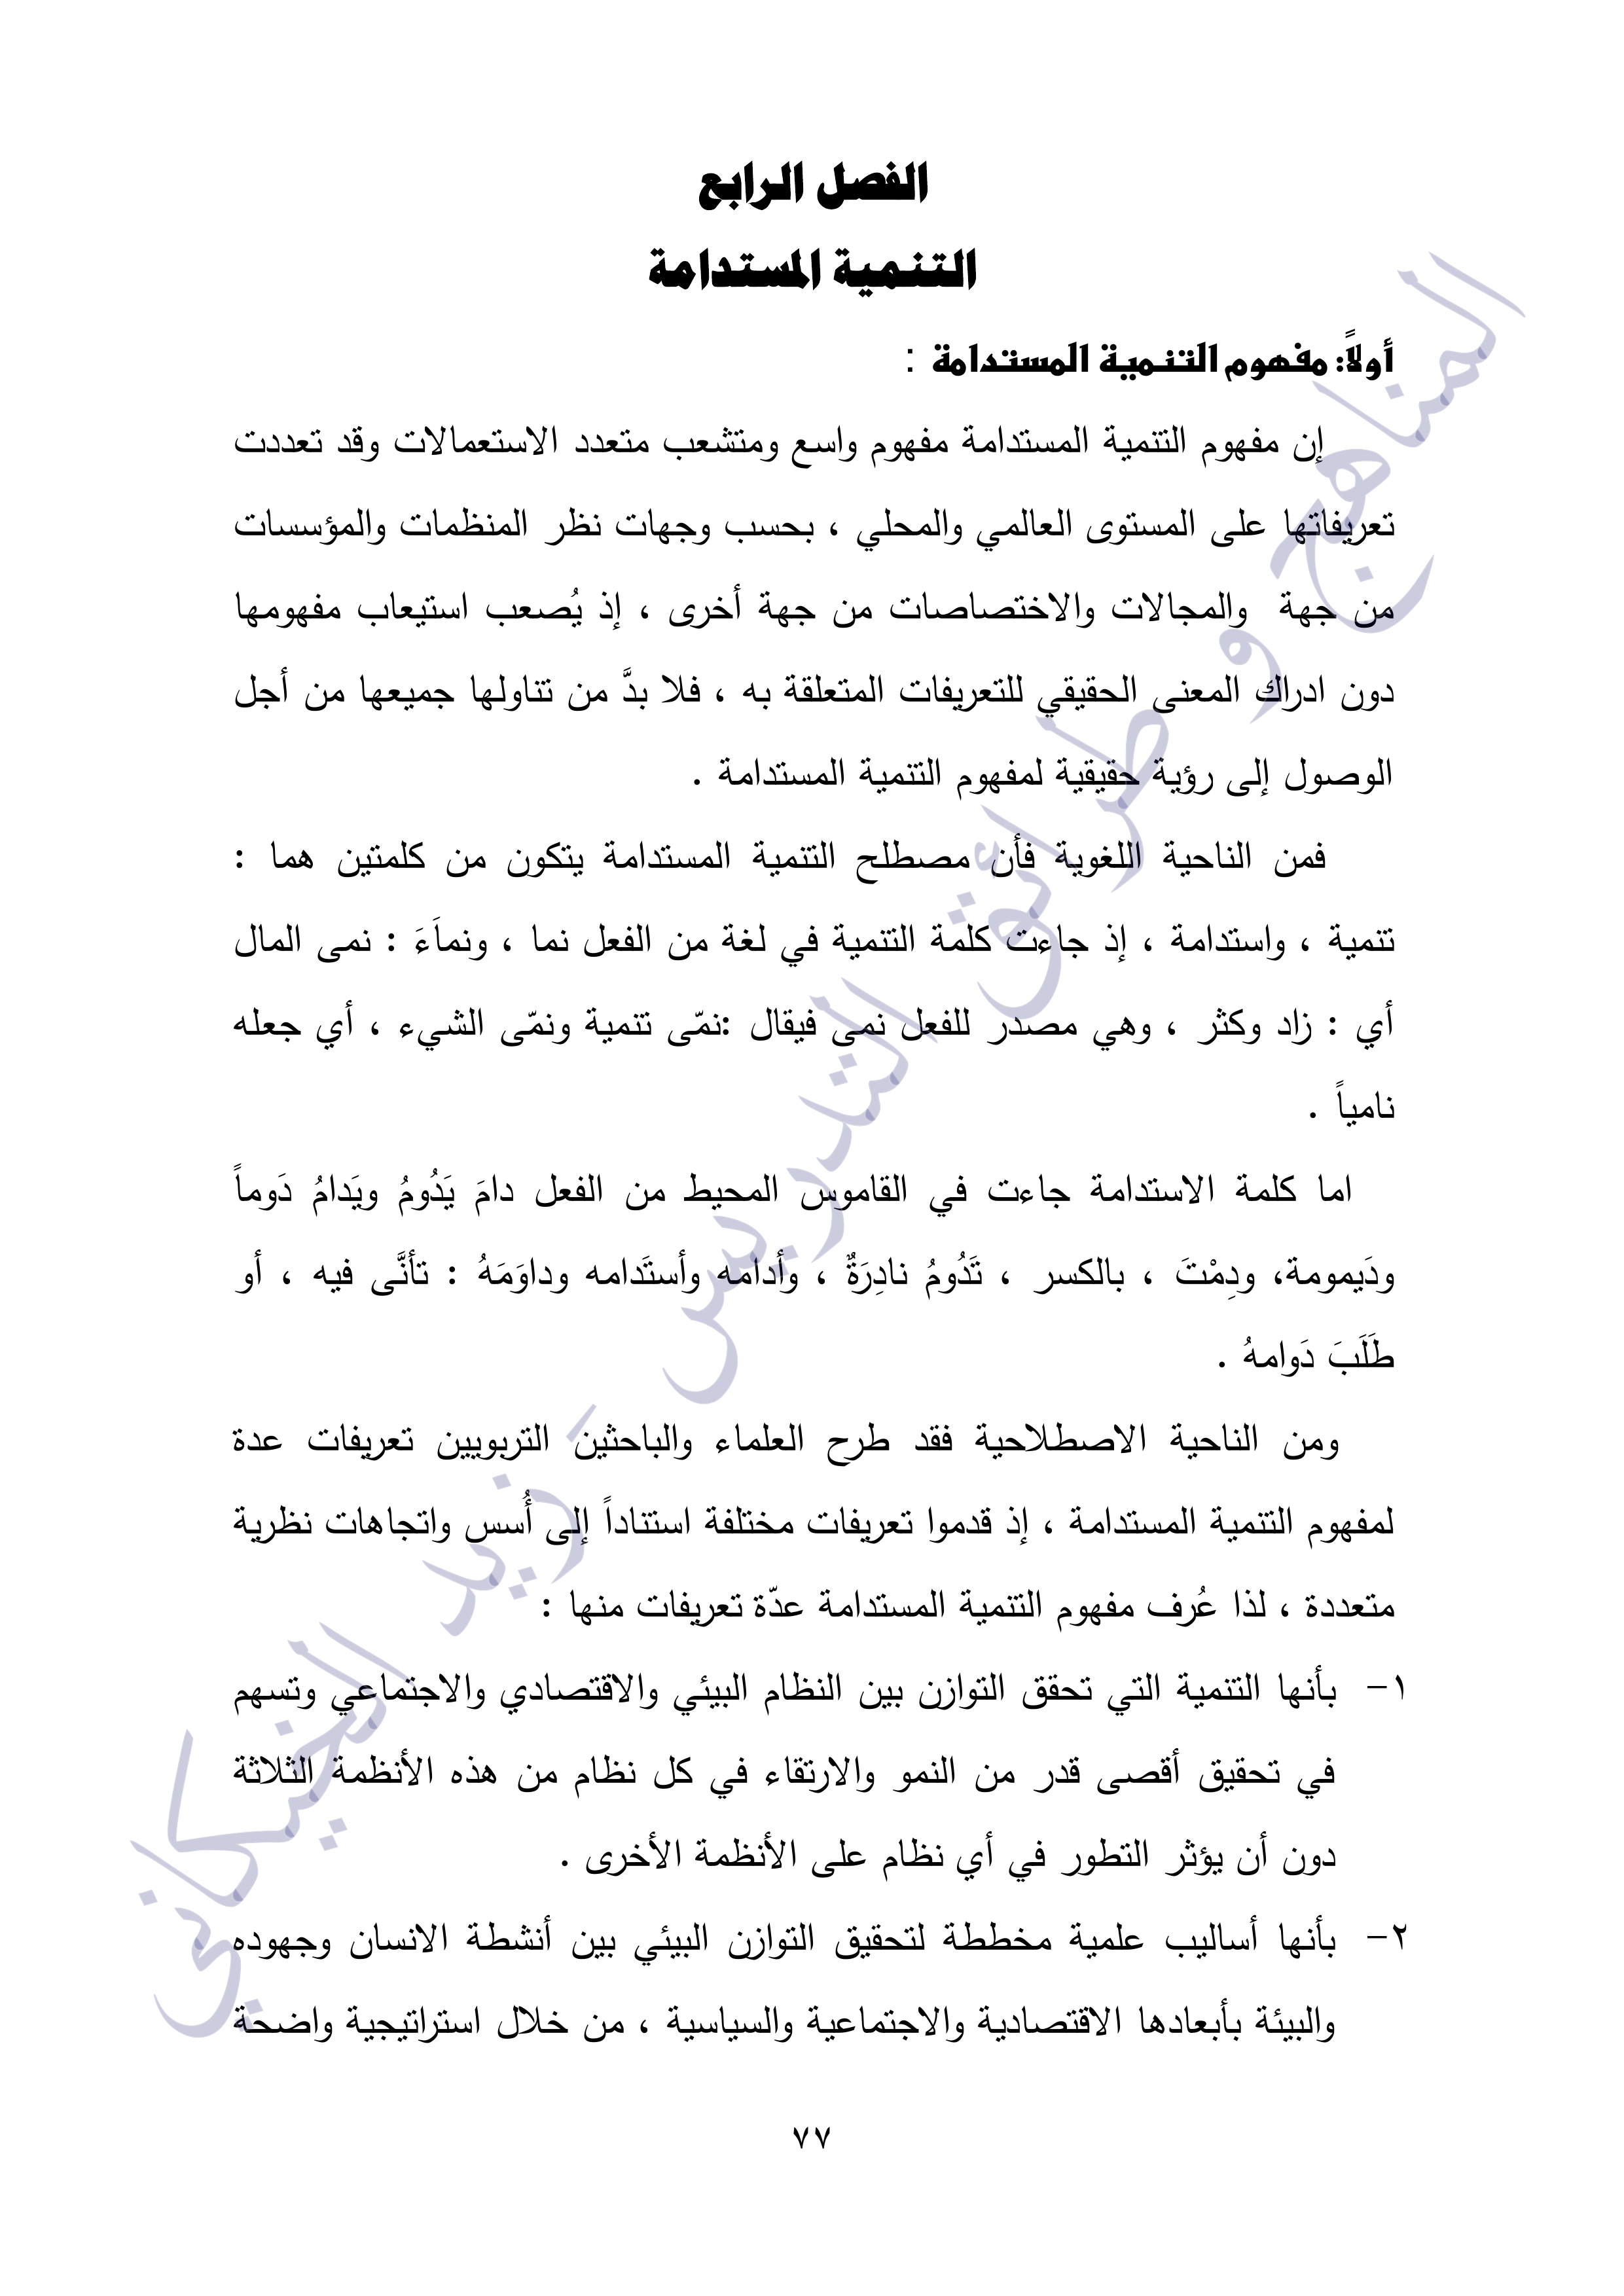 الفصل الرابع
التنمية المستدامة
أولاً: مفهوم التنمية المستدامة :
إن مفهوم التنمية المستدامة مفهوم واسع ومتشعب متعدد الاستعمالات وقد تعددت
تعريفاتها على المستوى العالمي والمحلي ، بحسب وجهات نظر المنظمات والمؤسسات
من جهة والمجالات والاختصاصات من جهة أخرى ، إذ يُصعب استيعاب مفهومها
دون ادراك المعنى الحقيقي للتعريفات المتعلقة به ، فلا بدَّ من تناولها جميعها من أجل
الوصول إلى رؤية حقيقية لمفهوم التنمية المستدامة .
فمن الناحية اللغوية فأن مصطلح التنمية المستدامة يتكون من كلمتين هما :
تنمية ، واستدامة ، إذ جاءت كلمة التنمية في لغة من الفعل نما ، ونماَءَ : نمى المال
أي : زاد وكثر ، وهي مصدر للفعل نمى فيقال :نمّى تنمية ونمّى الشيء ، أي جعله
نامياً .
اما كلمة الاستدامة جاءت في القاموس المحيط من الفعل دامَ يَدُومُ ويَدامُ دَوماً
ودَيمومة، ودِمْتَ ، بالكسر ، تَدُومُ نادِرَةٌ ، وأدامه وأستَدامه وداوَمَهُ : تأنَّى فيه ، أو
طَلَبَ دَوامهُ .
ومن الناحية الاصطلاحية فقد طرح العلماء والباحثين التربويين تعريفات عدة
لمفهوم التنمية المستدامة ، إذ قدموا تعريفات مختلفة استناداً إلى أُسس واتجاهات نظرية
متعددة ، لذا عُرف مفهوم التنمية المستدامة عدّة تعريفات منها :
١- بأنها التنمية التي تحقق التوازن بين النظام البيئي والاقتصادي والاجتماعي وتسهم
في تحقيق أقصى قدر من النمو والارتقاء في كل نظام من هذه الأنظمة الثلاثة
دون أن يؤثر التطور في أي نظام على الأنظمة الأخرى .
٢- بأنها أساليب علمية مخططة لتحقيق التوازن البيئي بين أنشطة الانسان وجهوده
والبيئة بأبعادها الاقتصادية والاجتماعية والسياسية ، من خلال استراتيجية واضحة
٧٧
المناهج و طرائق التدريس - زيد الخيكاني